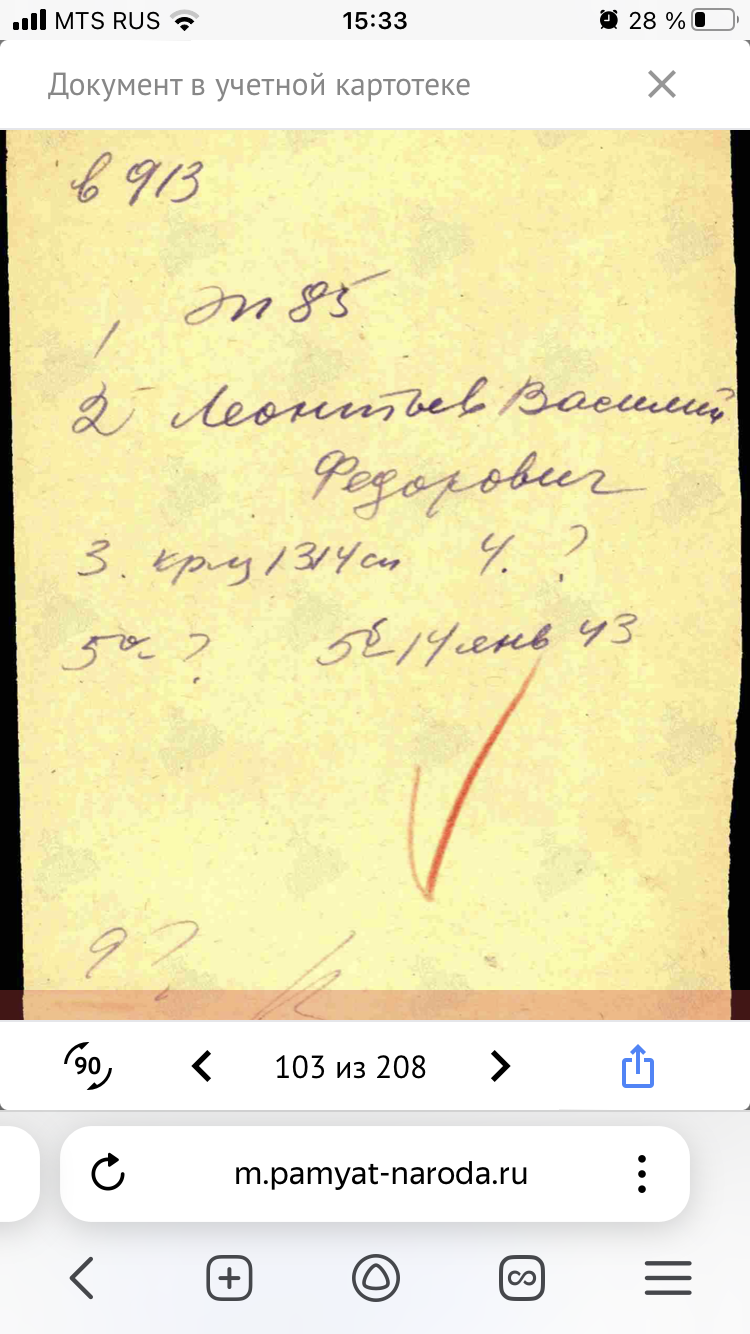 MTS RUS 15:33 28 %
Документ в учетной картотеке
в 913
эп 85
1
2 Леонтьев Василий
Федорович
3. крц 1314 сп 4. ?
5а ? 5б 14 янв 43
9 ?
90 103 из 208
m.pamyat-naroda.ru